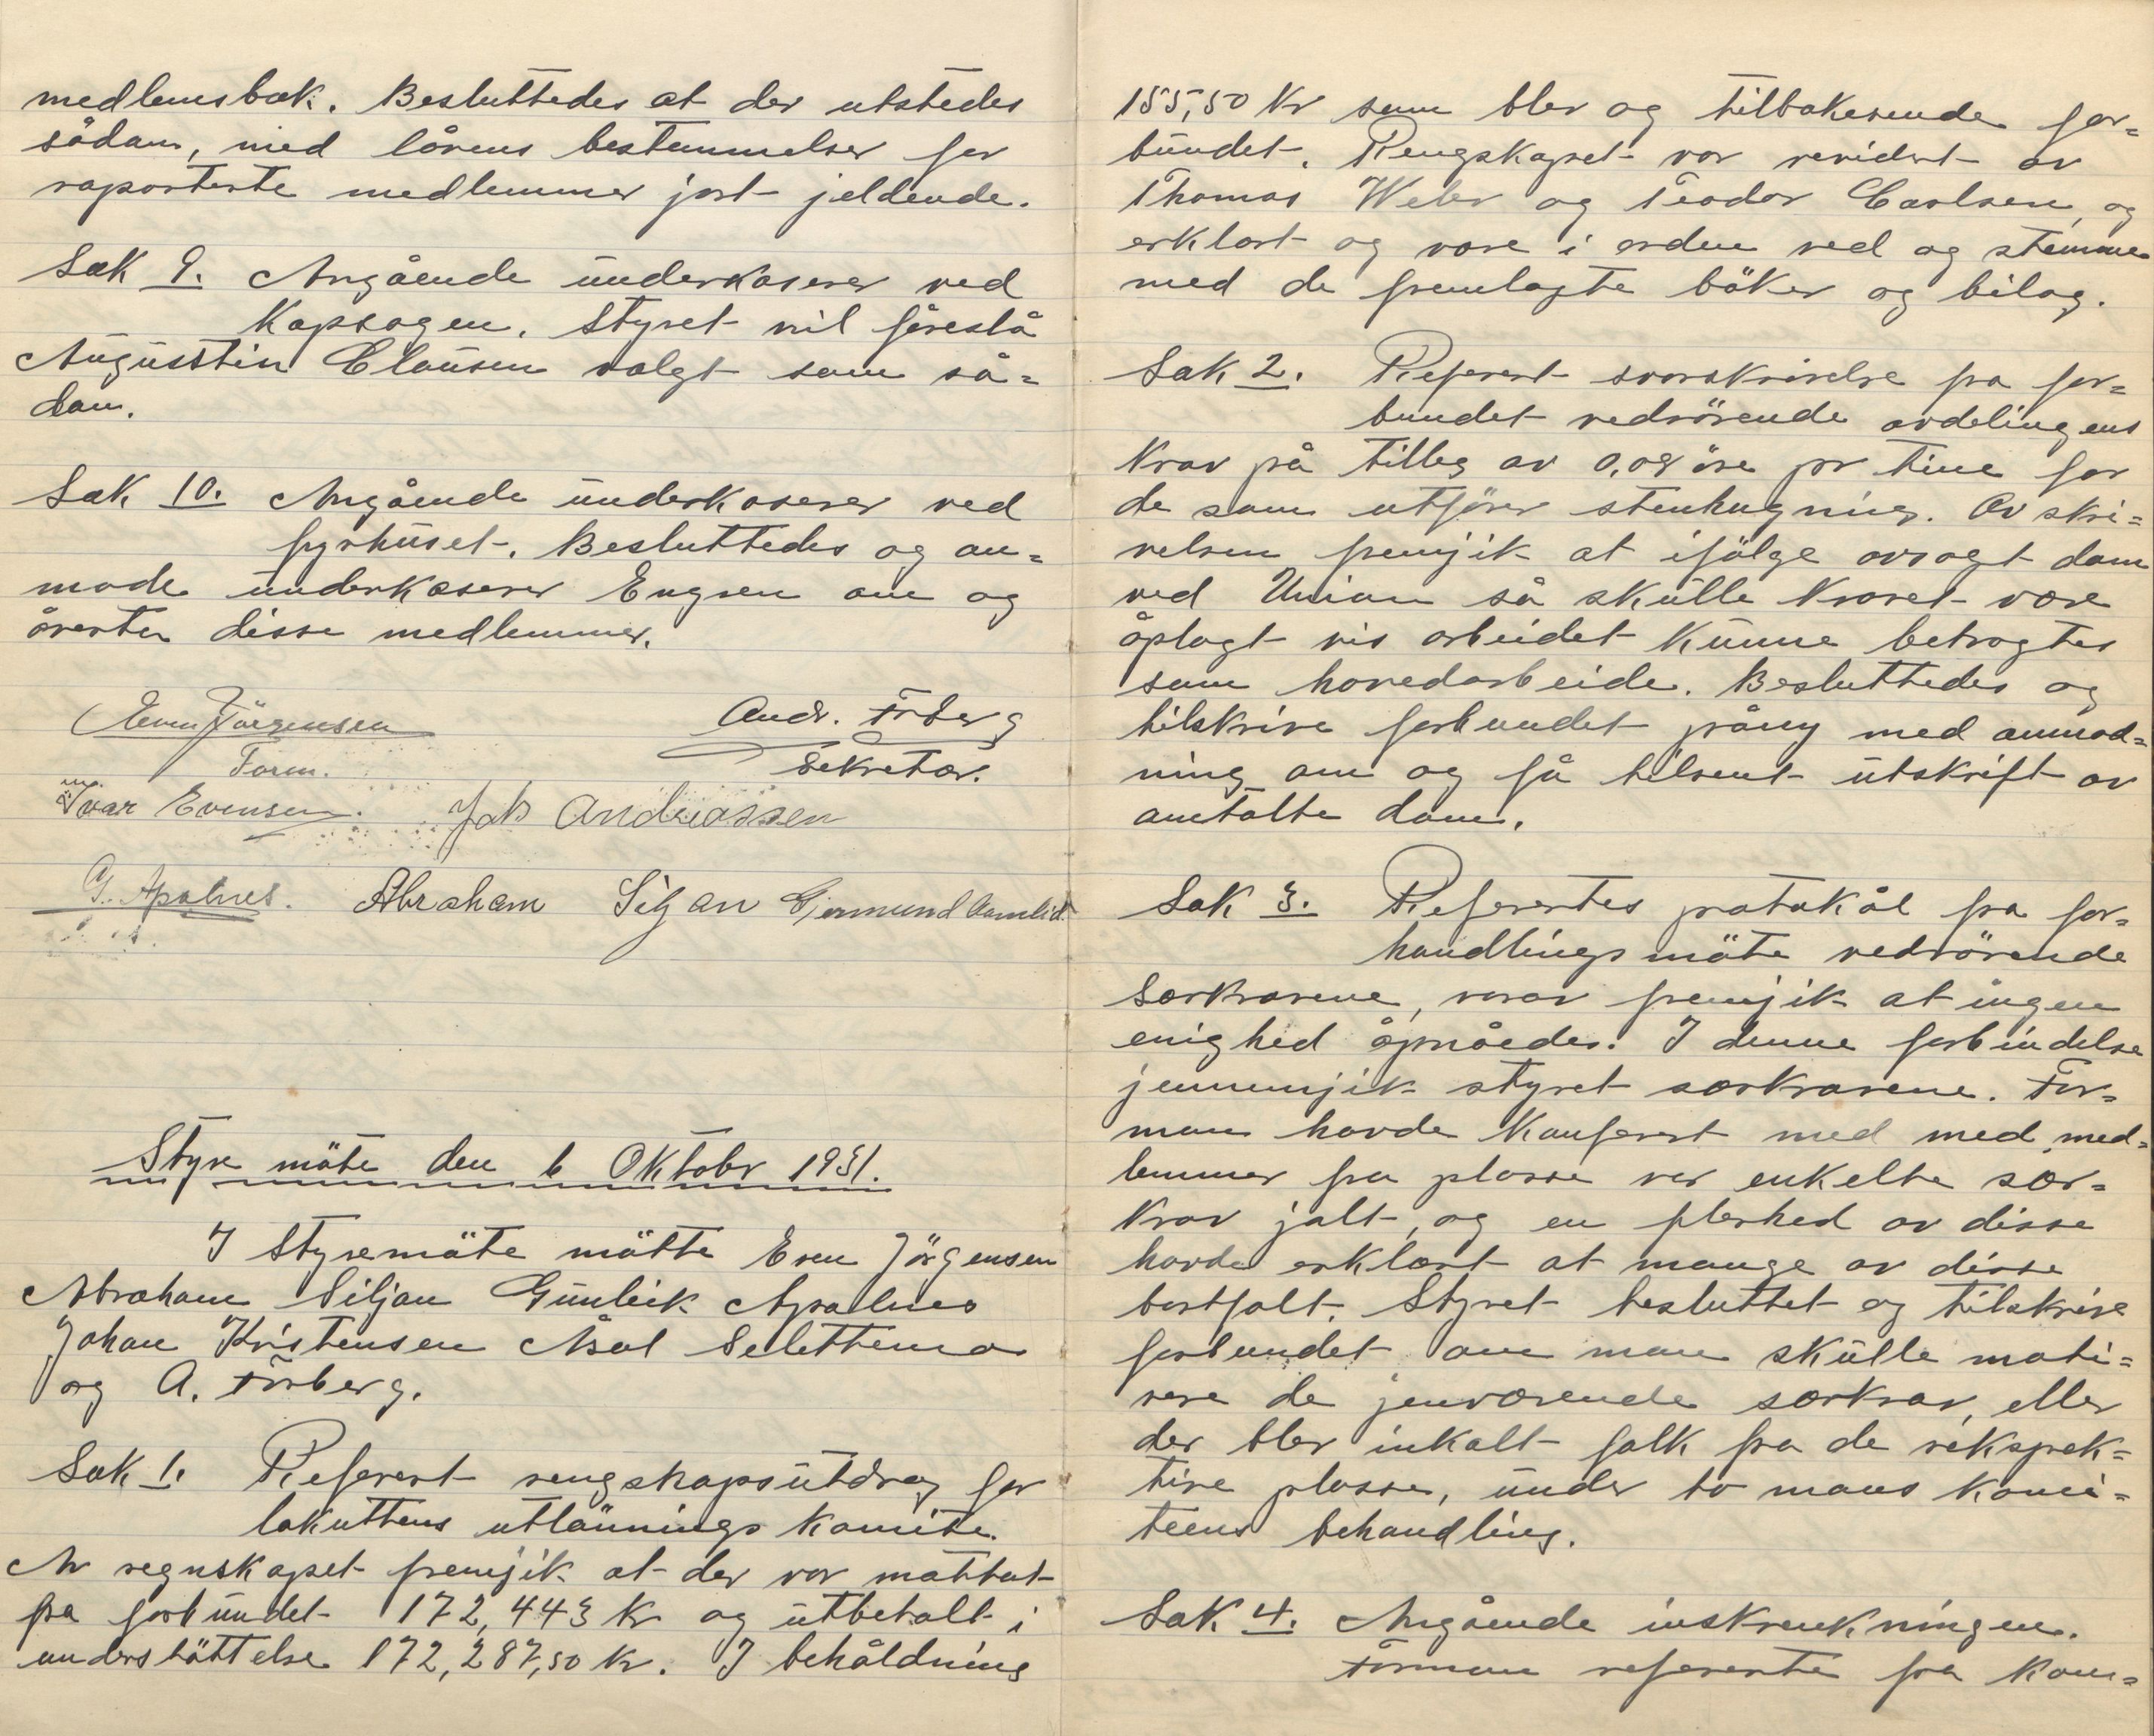 medlemsbok. Besluttedes at der utstedes
sådan, med lårens bestemmelser for
raporterte medlemmer jort jeldende.
Sak 9. Angående underkaserer ved
Kapsagen. Styret vil föreslå
Augusstin Clausen valgt som så=
dan.
Sak 10. Angående underkaserer ved
fyrhuset. Besluttedes og an=
mode underkaserer Engsen om og
överta disse medlemmer.
Even Jörgensen
Andr. Förberg
Form.
Sekretær.
Ivar Evensen. Joh Andreassen
G. Apalnes. Abraham Siljan Gjermund
Styre möte den 6 Oktober 1931.
I Styremöte mötte Even Jörgensen
Abraham Siljan Gunleik Apalnes
Johan Kristensen Åsol Selettemo
og A. Förberg.
Sak 1. Referert rengskapsutdrag for
lokuttens utlånnings Komite.
Av regnskapet fremjik at der var mottat
fra forbundet 172,443 Kr og utbetalt i
understöttelse 172,287,50 Kr. I behåldning
155,50 Kr som blev og tilbakesende for=
bundet. Rengskapet var revidert av
Thomas Weler og Teodor Carlsen, og
erklært og være i orden ved og stemme
med de fremlagte böker og bilag.
Sak 2. Referert svarskrivelse fra for=
bundet vedrörende avdelingens
Krav på tilleg av 0,08 öre pr time for
de som utförer stenhugning. Av skri=
velsen fremjik at ifölge avsagt dom
ved Union så skulle Kravet være
åplagt vis arbeidet Kunne betragtes
som hovedarbeide. Besluttedes og
tilskrive forbundet påny med anmod=
ning om og få tilsent utskrift av
omtalte dom.
Sak 3. Referertes protokål fra for=
handlingsmöte vedrörende
Særkravene, vorav fremjik at ingen
enighed åpnåedes. I denne forbindelse
jennemjik styret særkravene. For=
man havde Konferert med med med=
lemmer fra plasse vor enkelte sær=
Krav jalt, og en flerhed av disse
havde erklært at mange av disse
bortfalt. Styret besluttet og tilskrive
forbundet om man skulle moti=
vere de jenværende særkrav, eller
der blev inkalt folk fra de rekspek=
tive plasse, under to mans Komi=
teens behandling.
Sak 4. Angående inskrenkningen.
Forman refererte fra Kom=